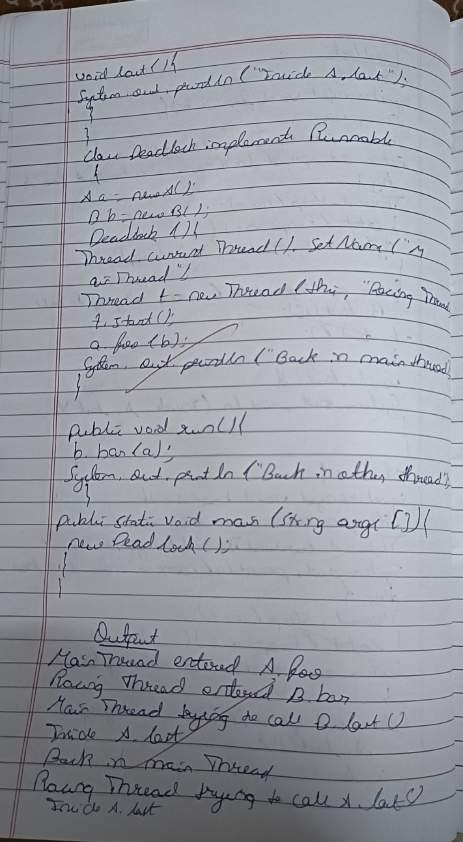 void last(){
System.out.println("Inside A.last");
}
}
class Deadlock implements Runnable
{
A a = new A();
B b = new B();
Deadlock (){
Thread.current Thread(). Set Name("M
ain Thread")
Thread t = new Thread (this, "Racing Thread
t. start();
a. foo (b);
System. out. println ("Back in main thread
}
public void run(){
b. bar (a);
System. out. println ("Back in other thread");
}
public static void main (String args []){
new Deadlock ();
}
}
Output
Main Thread entered A. foo
Racing Thread entered B. bar
Main Thread trying to call B. last ()
Inside A. last
Back in main Thread
Racing Thread trying to call A. last()
Inside A. last